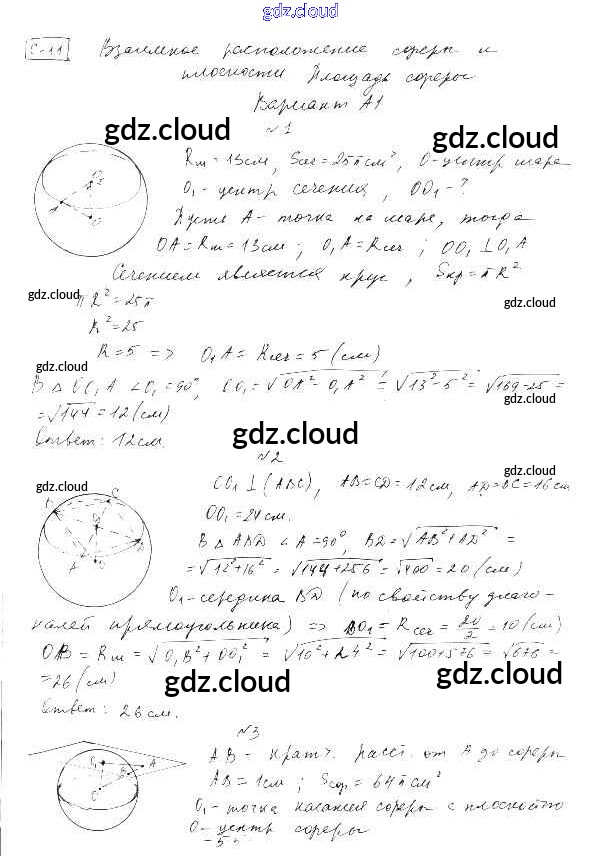 gdz.cloud
С-11 Взаимное расположение сферы и
плоскости Площадь сферы
Вариант А1
gdz.cloud gdz.cloud
№1
Rш = 13см, Sсеч = 25π см², O - центр шара
O₁ - центр сечения, OO₁ - ?
Пусть A - точка на шаре, тогда
OA = Rш = 13см; O₁A = Rсеч; OO₁ ⊥ O₁A
Сечением является круг, Sкр = πR²
gdz.cloud gdz.cloud
πR² = 25π
R² = 25
R = 5 => O₁A = Rсеч = 5 (см)
gdz.cloud
В △ OO₁A ∠O₁ = 90°, OO₁ = √OA² - O₁A² = √13² - 5² = √169 - 25 =
gdz.cloud
= √144 = 12 (см)
Ответ: 12см.
gdz.cloud
№2
gdz.cloud gdz.cloud
OO₁ ⊥ (ABC), AB = CD = 12см, AD = BC = 16см
OO₁ = 24см.
В △ ABD ∠A = 90°, BD = √AB² + AD² =
= √12² + 16² = √144 + 256 = √400 = 20 (см)
O₁ - середина BD (по свойству диаго-
налей прямоугольника) => BO₁ = Rсеч = 20/2 = 10 (см)
OB = Rш = √O₁B² + OO₁² = √10² + 24² = √100 + 576 = √676 =
= 26 (см)
gdz.cloud gdz.cloud
Ответ: 26см.
№3
AB - кратч. расст. от A до сферы
AB = 1см; Sсф = 64π см²
O₁ - точка касания сферы с плоскостью
O - центр сферы